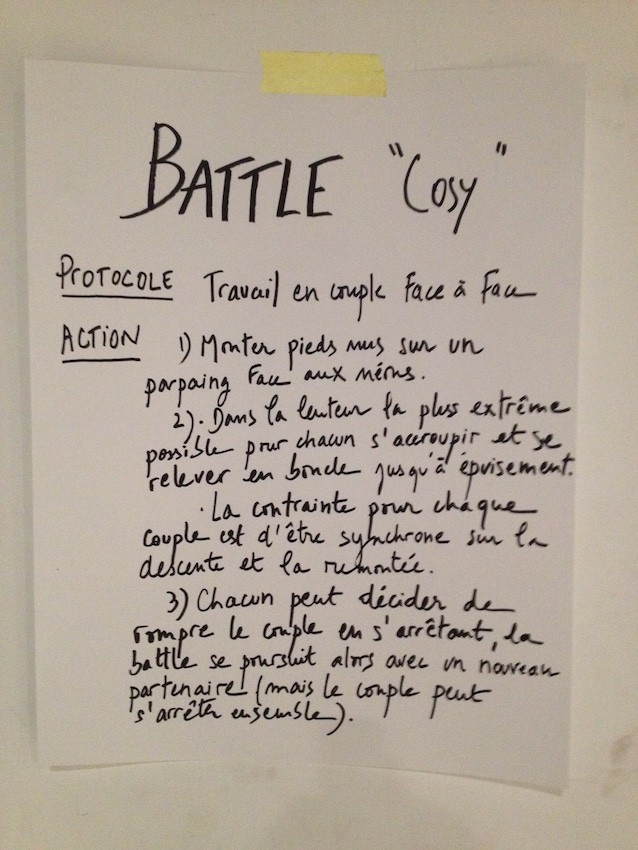 BATTLE "Cosy"
PROTOCOLE Travail en couple Face à Face
ACTION 1) Monter pieds nus sur un
parpaing Face aux néons.
2). Dans la lenteur la plus extrême
possible pour chacun s'accroupir et se
relever en boucle jusqu'à épuisement.
. La contrainte pour chaque
couple est d'être synchrone sur la
descente et la remontée.
3) Chacun peut décider de
rompre le couple en s'arrêtant, la
battle se poursuit alors avec un nouveau
partenaire (mais le couple peut
s'arrêter ensemble).